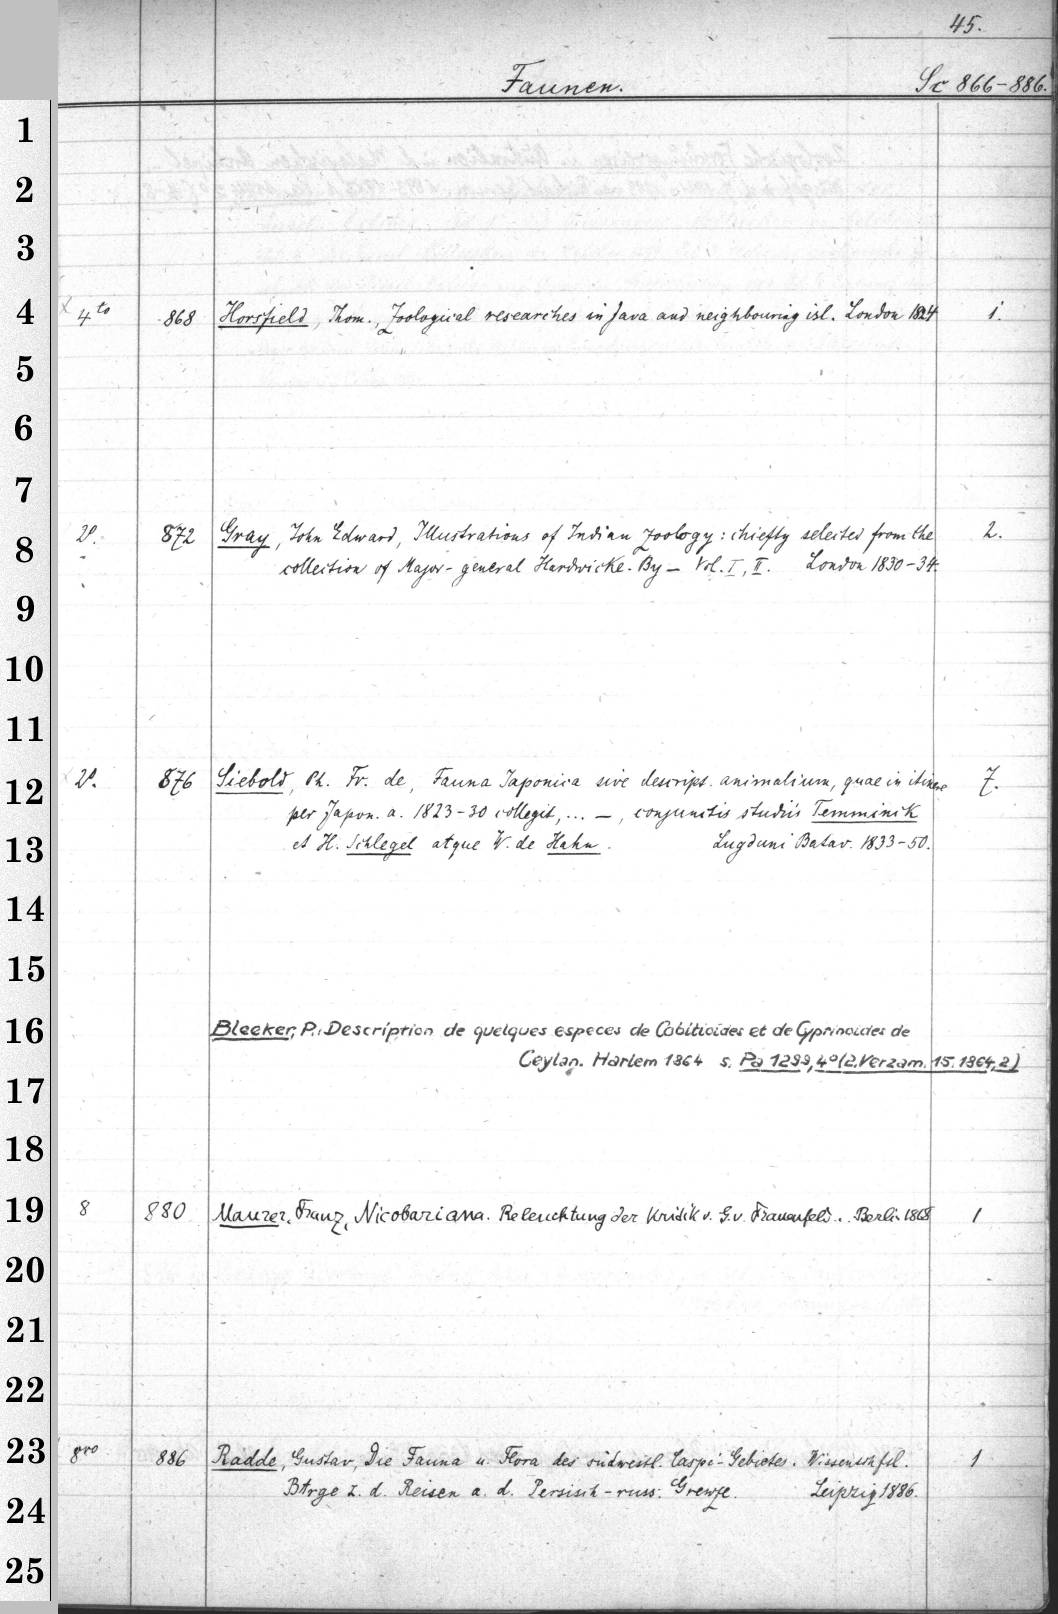 45.
Faunen. Sc 866-886.
1
2
3
4 4to 868 Horsfield, Thom., Zoological researches in Java and neighbouring isl. London 1824 1.
5
6
7
8 2º. 872 Gray, John Edward, Illustrations of Indian zoology: chiefly selected from the 2.
collection of Major-general Hardwicke. By — Vol. I, II. London 1830-34.
9
10
11
12 2º. 876 Siebold, Ph. Fr. de, Fauna Japonica sive descript. animalium, quae in itinere 7.
per Japon. a. 1823-30 collegit, ... —, conjunctis studiis Temminik
13 et H. Schlegel atque W. de Hahn. Lugduni Batav. 1833-50.
14
15
16 Bleeker, P.: Description de quelques especes de Cobitioides et de Cyprinoides de
Ceylan. Harlem 1864 s. Pa 1299, 4º (2. Verzam. 15. 1864, 2)
17
18
19 8 880 Maurer, Franz, Nicobariana. Beleuchtung der Kritik v. G. v. Frauenfeld.. Berlin 1868 1
20
21
22
23 8vo 886 Radde, Gustav, Die Fauna u. Flora des südwestl. Caspi-Gebietes. Wissenschftl. 1
24 Btrge z. d. Reisen a. d. Persisch-russ. Grenze. Leipzig 1886.
25